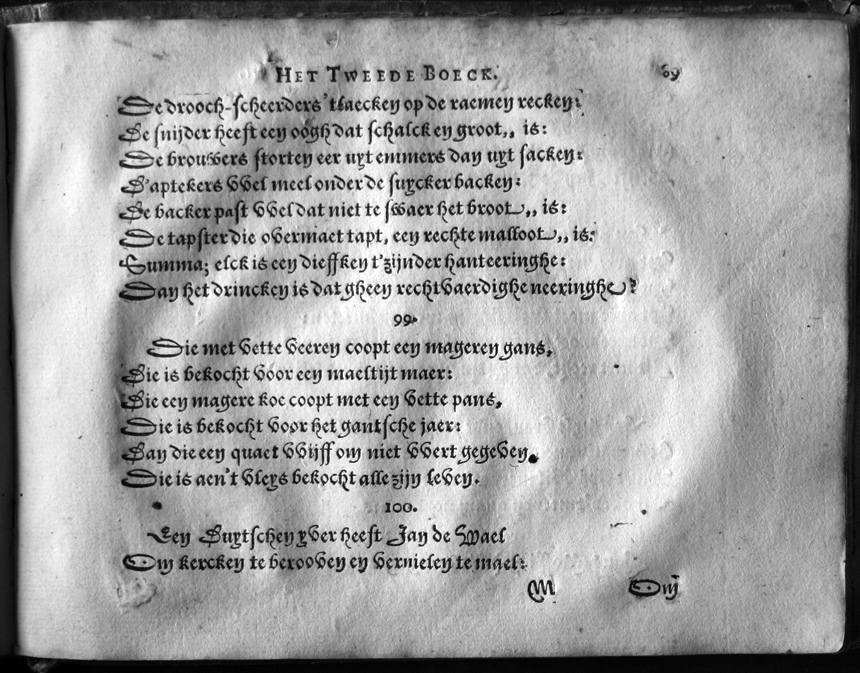 HET TWEEDE BOECK. 69
De drooch-scheerders 'tlaecken op de raemen recken:
De snijder heeft een oogh dat schalck en groot,, is:
De brouwers storten eer uyt emmers dan uyt sacken:
D'aptekers wel meel onder de suycker backen:
De backer past wel dat niet te swaer het broot,, is:
De tapster die overmaet tapt, een rechte malloot,, is:
Summa; elck is een dieffken t'zijnder hanteeringhe:
Dan het drincken is dat gheen rechtvaerdighe neeringhe?
99.
Die met vette veeren coopt een mageren gans,
Die is bekocht voor een maeltijt maer:
Die een magere koe coopt met een vette pans,
Die is bekocht voor het gantsche jaer:
Dan die een quaet wijff om niet wert gegeven,
Die is aen't vleys bekocht alle zijn leven.
100.
Een Duytschen yver heeft Jan de Wael
Om kercken te berooven en vernielen te mael:
M Om